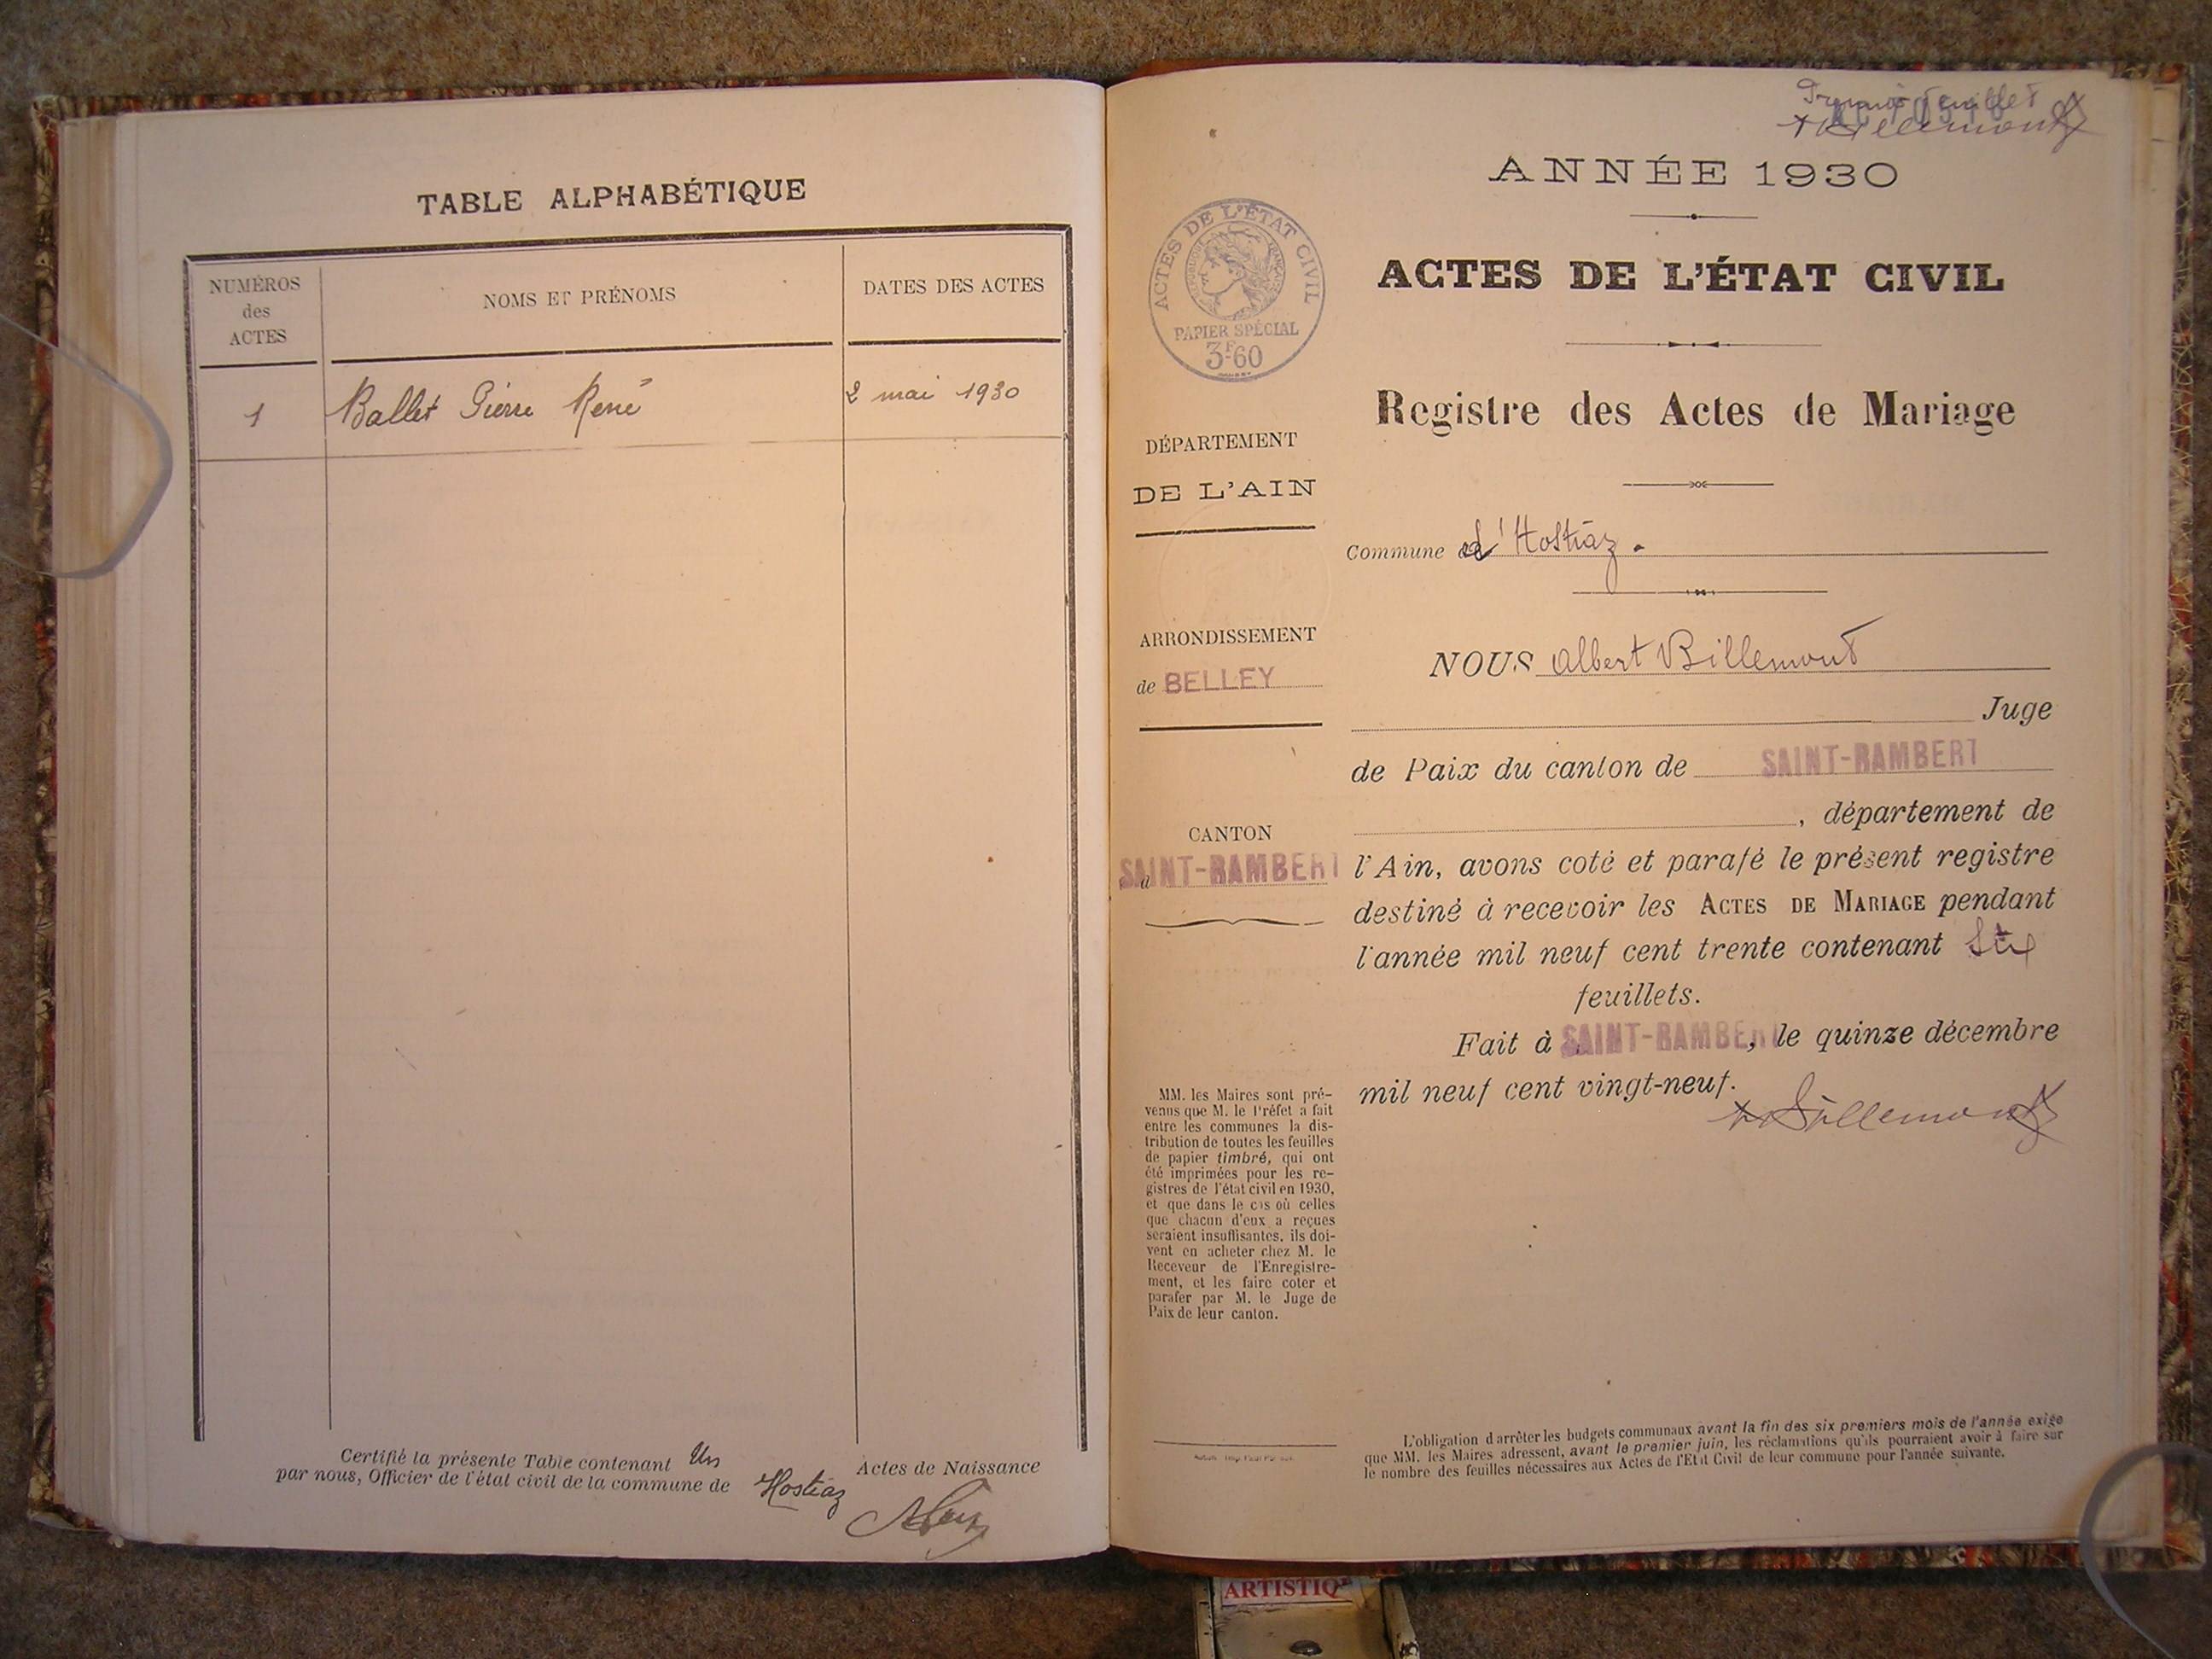 TABLE ALPHABÉTIQUE
NUMÉROS
des
ACTES
NOMS ET PRÉNOMS
DATES DES ACTES
1 Ballet Pierre René 2 mai 1930
Certifié la présente Table contenant Un Actes de Naissance
par nous, Officier de l'état civil de la commune de Hostiaz
Premier feuillet
Billemont
ANNÉE 1930
ACTES DE L'ÉTAT CIVIL
RÉPUBLIQUE FRANÇAISE
PAPIER SPÉCIAL
3F60
ACTES DE L'ÉTAT CIVIL
Registre des Actes de Mariage
DÉPARTEMENT
DE L'AIN
Commune d'Hostiaz.
ARRONDISSEMENT
de BELLEY
CANTON
d SAINT-RAMBERT
MM. les Maires sont pré-
venus que M. le Préfet a fait
entre les communes la dis-
tribution de toutes les feuilles
de papier timbré, qui ont
été imprimées pour les re-
gistres de l'état civil en 1930,
et que dans le cas où celles
que chacun d'eux a reçues
seraient insuffisantes, ils doi-
vent en acheter chez M. le
Receveur de l'Enregistre-
ment, et les faire coter et
parafer par M. le Juge de
Paix de leur canton.
NOUS Albert Billemont
Juge
de Paix du canton de SAINT-RAMBERT
, département de
l'Ain, avons coté et parafé le présent registre
destiné à recevoir les ACTES DE MARIAGE pendant
l'année mil neuf cent trente contenant Six
feuillets.
Fait à SAINT-RAMBERT, le quinze décembre
mil neuf cent vingt-neuf.
Billemont
L'obligation d'arrêter les budgets communaux avant la fin des six premiers mois de l'année exige
que MM. les Maires adressent, avant le premier juin, les réclamations qu'ils pourraient avoir à faire sur
le nombre des feuilles nécessaires aux Actes de l'Etat Civil de leur commune pour l'année suivante.
ARTISTIQ